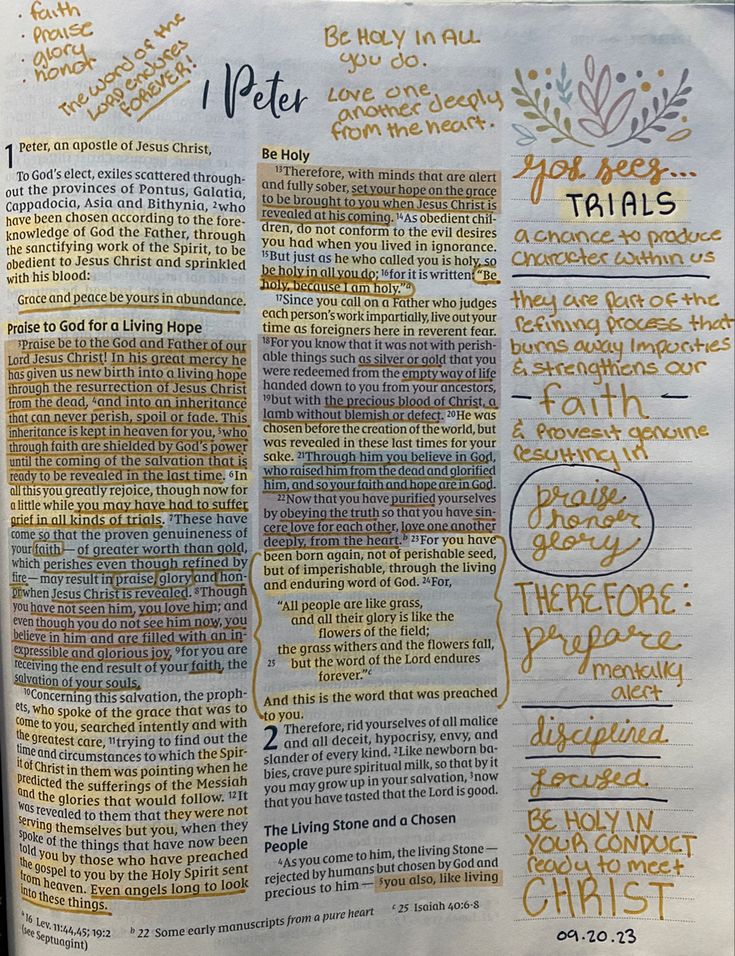 · faith
· Praise
· glory
· honor
The word of the
LORD endures
FOREVER!
1 Peter
Be HOLY in ALL
you do.
Love one
another deeply
from the heart.
1 Peter, an apostle of Jesus Christ,
To God's elect, exiles scattered through-
out the provinces of Pontus, Galatia,
Cappadocia, Asia and Bithynia, 2who
have been chosen according to the fore-
knowledge of God the Father, through
the sanctifying work of the Spirit, to be
obedient to Jesus Christ and sprinkled
with his blood:
Grace and peace be yours in abundance.
Praise to God for a Living Hope
3Praise be to the God and Father of our
Lord Jesus Christ! In his great mercy he
has given us new birth into a living hope
through the resurrection of Jesus Christ
from the dead, 4and into an inheritance
that can never perish, spoil or fade. This
inheritance is kept in heaven for you, 5who
through faith are shielded by God's power
until the coming of the salvation that is
ready to be revealed in the last time. 6In
all this you greatly rejoice, though now for
a little while you may have had to suffer
grief in all kinds of trials. 7These have
come so that the proven genuineness of
your faith — of greater worth than gold,
which perishes even though refined by
fire — may result in praise, glory and hon-
or when Jesus Christ is revealed. 8Though
you have not seen him, you love him; and
even though you do not see him now, you
believe in him and are filled with an in-
expressible and glorious joy, 9for you are
receiving the end result of your faith, the
salvation of your souls.
10Concerning this salvation, the proph-
ets, who spoke of the grace that was to
come to you, searched intently and with
the greatest care, 11trying to find out the
time and circumstances to which the Spir-
it of Christ in them was pointing when he
predicted the sufferings of the Messiah
and the glories that would follow. 12It
was revealed to them that they were not
serving themselves but you, when they
spoke of the things that have now been
told you by those who have preached
the gospel to you by the Holy Spirit sent
from heaven. Even angels long to look
into these things.
Be Holy
13Therefore, with minds that are alert
and fully sober, set your hope on the grace
to be brought to you when Jesus Christ is
revealed at his coming. 14As obedient chil-
dren, do not conform to the evil desires
you had when you lived in ignorance.
15But just as he who called you is holy, so
be holy in all you do; 16for it is written: "Be
holy, because I am holy."a
17Since you call on a Father who judges
each person's work impartially, live out your
time as foreigners here in reverent fear.
18For you know that it was not with perish-
able things such as silver or gold that you
were redeemed from the empty way of life
handed down to you from your ancestors,
19but with the precious blood of Christ, a
lamb without blemish or defect. 20He was
chosen before the creation of the world, but
was revealed in these last times for your
sake. 21Through him you believe in God,
who raised him from the dead and glorified
him, and so your faith and hope are in God.
22Now that you have purified yourselves
by obeying the truth so that you have sin-
cere love for each other, love one another
deeply, from the heart.b 23For you have
been born again, not of perishable seed,
but of imperishable, through the living
and enduring word of God. 24For,
"All people are like grass,
and all their glory is like the
flowers of the field;
the grass withers and the flowers fall,
25 but the word of the Lord endures
forever."c
And this is the word that was preached
to you.
2 Therefore, rid yourselves of all malice
and all deceit, hypocrisy, envy, and
slander of every kind. 2Like newborn ba-
bies, crave pure spiritual milk, so that by it
you may grow up in your salvation, 3now
that you have tasted that the Lord is good.
The Living Stone and a Chosen
People
4As you come to him, the living Stone —
rejected by humans but chosen by God and
precious to him — 5you also, like living
a 16 Lev. 11:44,45; 19:2
(see Septuagint)
b 22 Some early manuscripts from a pure heart
c 25 Isaiah 40:6-8
God sees...
TRIALS
a chance to produce
character within us
they are part of the
refining process that
burns away impurities
& strengthens our
— faith —
& proves it genuine
resulting in
praise
honor
glory
THEREFORE:
prepare
mentally
alert
disciplined
focused
BE HOLY IN
YOUR CONDUCT
ready to meet
CHRIST
09.20.23